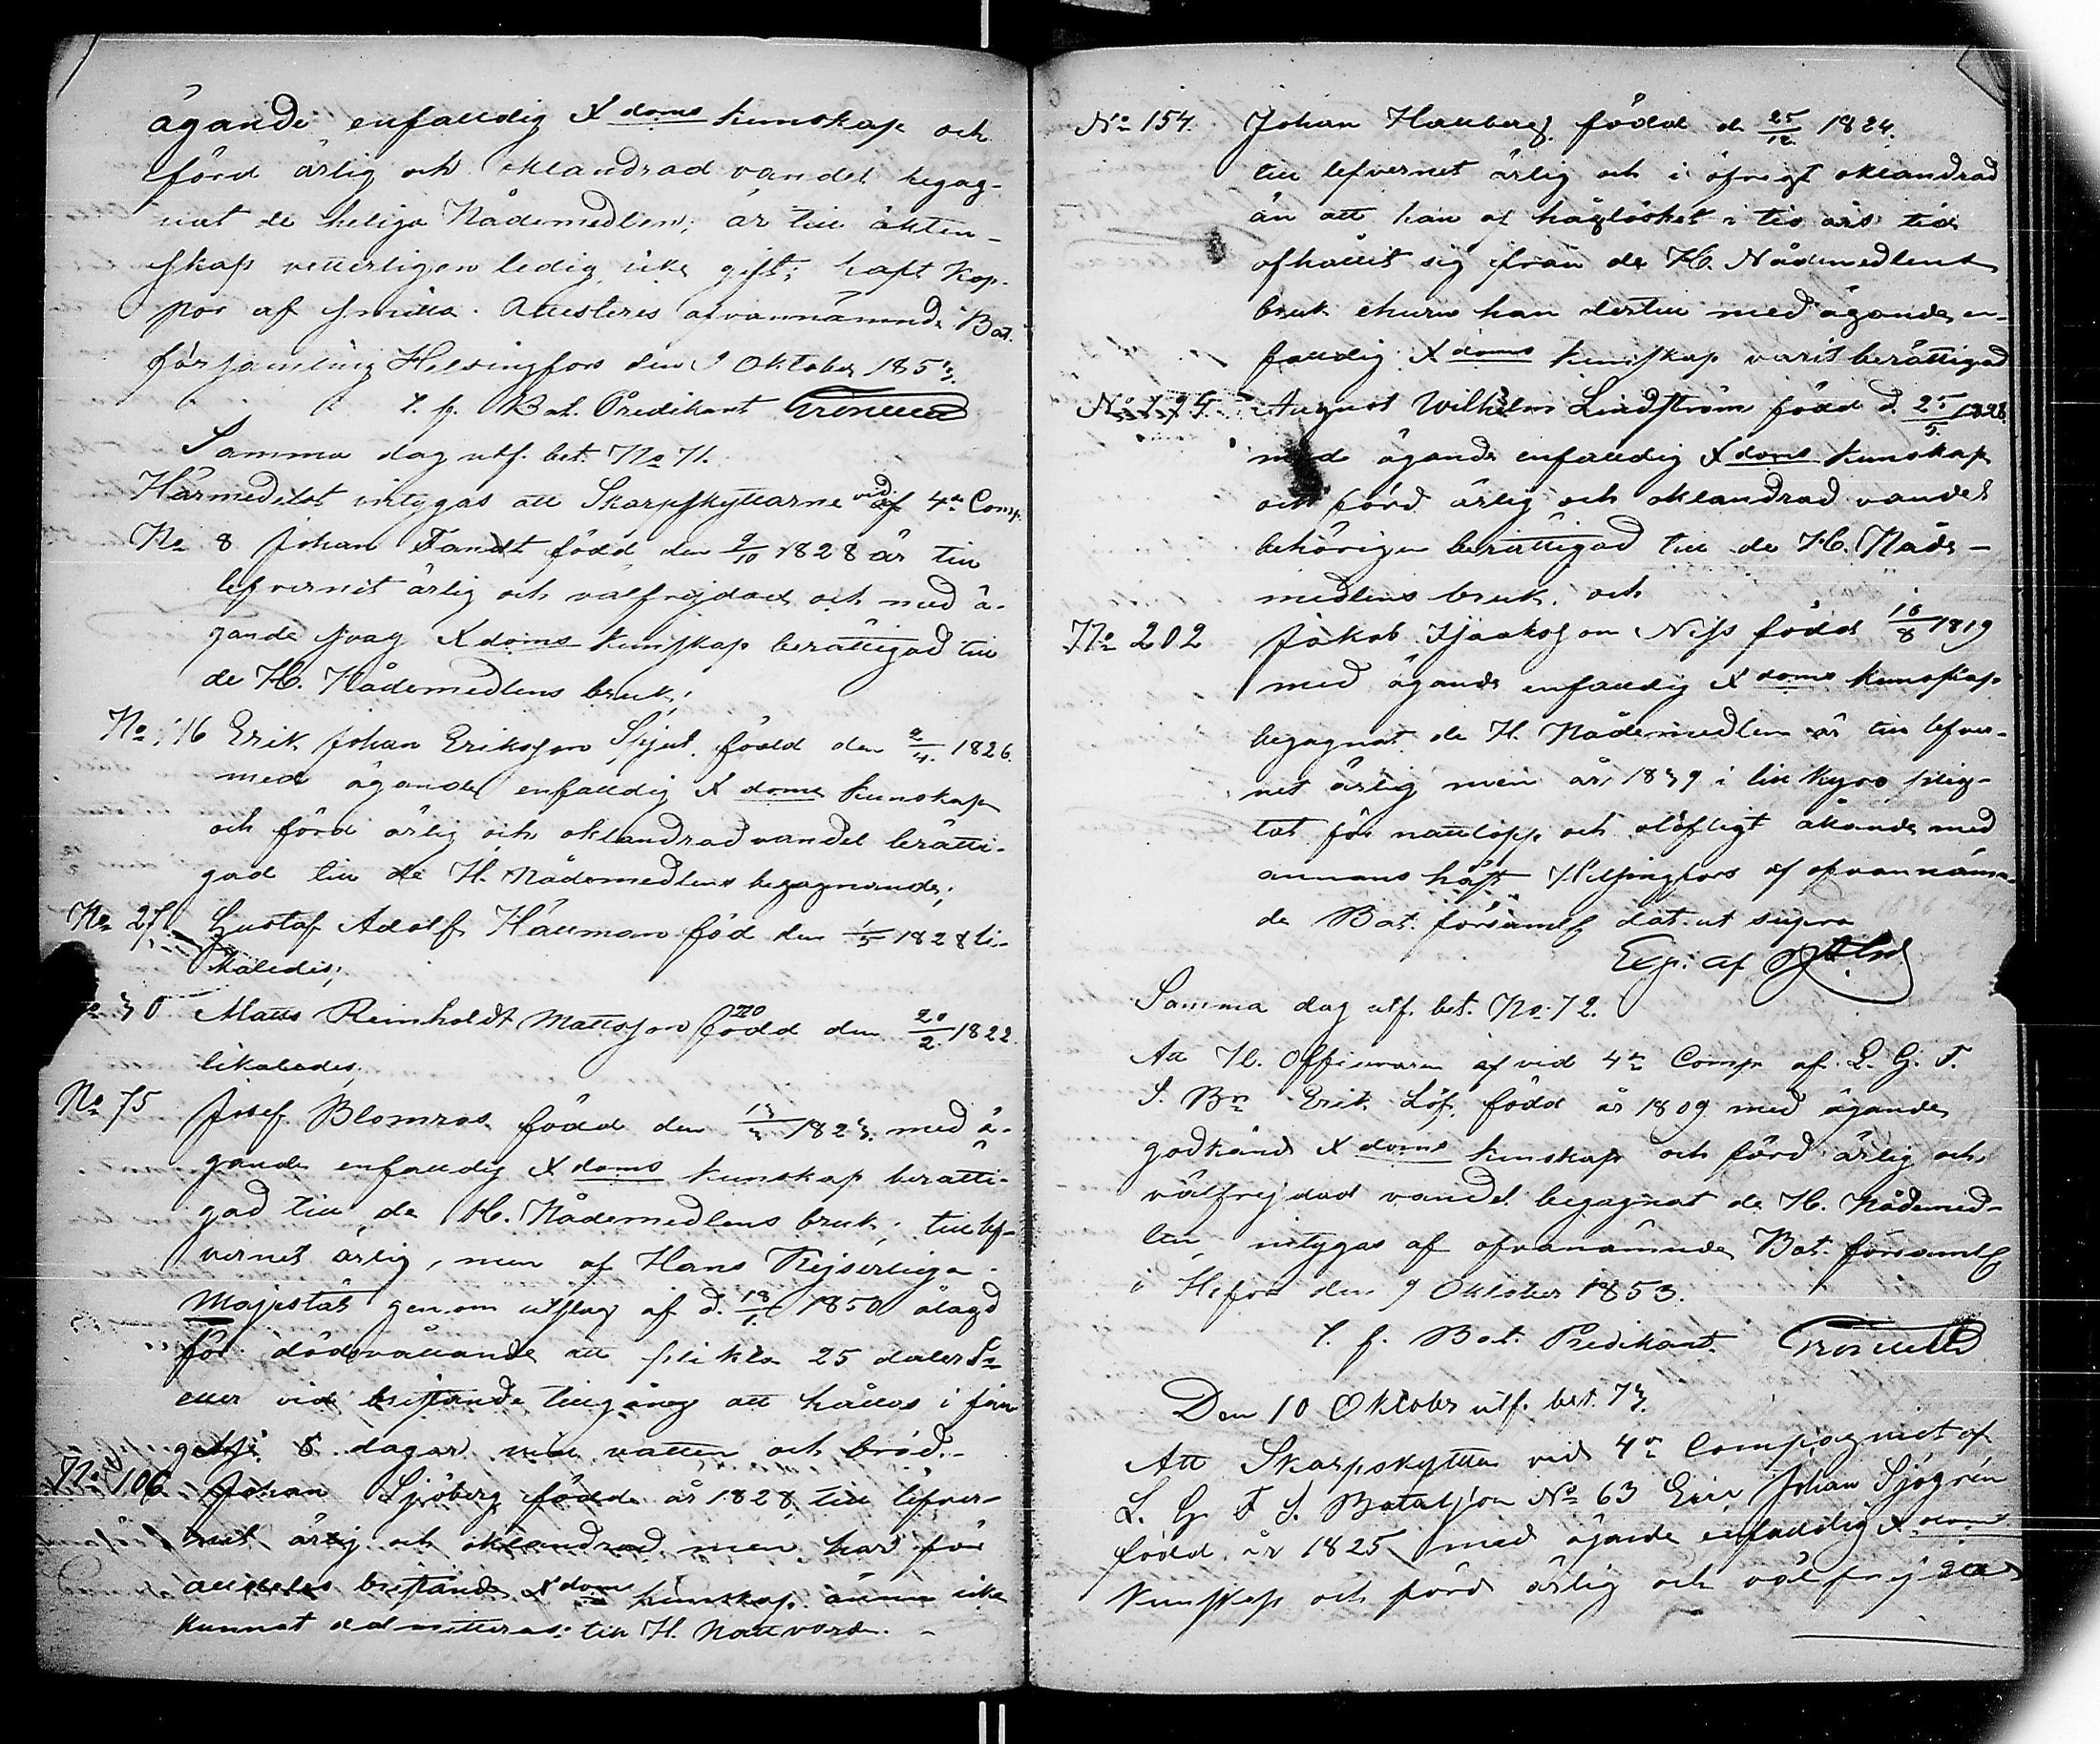 ägande enfaldig Xdoms kunskap och
förd ärlig och oklandrad vandel begag-
nat de heliga Nådemedlen; är till äkten-
skap vetterligen ledig, icke gift; haft Kop-
por af smitta. Attesteras af vannämnde Bat.
församling Helsingfors den 9 Oktober 1853.
T. f. Bat. Predikant
Samma dag utf. bet. No 71.
Härmedelst intygas att Skarpskyttarne vid af 4de Comp.
No 8 Johan Fandt född den 9/10 1828 är till
lefvernet ärlig och välfrejdad och med ä-
gande svag Xdoms kunskap berättigad till
de H. Nådemedlens bruk;
No 16 Erik Johan Eriksson Spjut född den 2/4 1826.
med ägande enfaldig Xdoms kunskap
och förd ärlig och oklandrad vandel berätti-
gad till de H. Nådemedlens begagnande;
No 27. Gustaf Adolf Hällman född den 1/5 1828 li-
kaledes;
No 30 Matts Reinholdt Mattsson född den 20/2 1822.
likaledes,
No 75 Josef Blomros född den 13/3 1823. med ä-
gande enfaldig Xdoms kunskap berätti-
gad till de H. Nådemedlens bruk; till lef-
vernet ärlig, men af Hans Kejserliga
Majestät genom utslag af d. 18/1 1850 ålagd
för dödsvållande att plikta 25 daler Sr
eller vid bristande tillgång att hållas i fän
gelse 8 dagar vid vatten och bröd.-
No 106 Johan Sjöberg född år 1828 till lefver-
net ärlig och oklandrad men har för
alldeles bristande Xdoms kunskap ännu icke
kunnat admitteras till H. Nattvard. -
No 154. Johan Hallberg född d. 25/12 1824.
till lefvernet ärlig och i öfrigt oklandrad
än att han af håglöshet i tio års tid
afhållit sig ifrån de H. Nådemedlens
bruk ehuru han dertill med ägande en-
faldig Xdoms kunskap varit berättigad
No 179. August Wilhelm Lindström född d. 25/5 1828.
med ägande enfaldig Xdoms kunskap
och förd ärlig och oklandrad vandel
behörigen berättigad till de H. Nåde-
medlens bruk. och
No 202 Jakob Isaaksson Niss född 10/8 1819
med ägande enfaldig Xdoms kunskap
begagnat de H. Nådemedlen är till lefver-
net ärlig men år 1839 i Lill Kyro plig-
tat för nattlopp och olofligt åkande med
annans häst Helsingfors af ofvannämn-
de Bat. församlg dat. ut supra
Exp. af
Samma dag utf. bet. No 72.
Att U. Officeraren af vid 4de Comp. af L. G. F.
S. Bn Erik Löf, född år 1809 med ägande
godkänd Xdoms kunskap och förd ärlig och
välfrejdad vandel begagnat de H. Nådemed-
len, intygas af ofvannämnde Bat. församlg
i Hfors den 9 Oktober 1853.
T. f. Bat. Predikant.
Den 10 Oktober utf. bet. 73.
Att Skarpskytten vid 4de Compagniet af
L. G. F. S. Bataljon No 63 Eric Johan Sjögrén
född år 1825 med ägande enfaldig Xdoms
kunskap och förd ärlig och välfrejdad